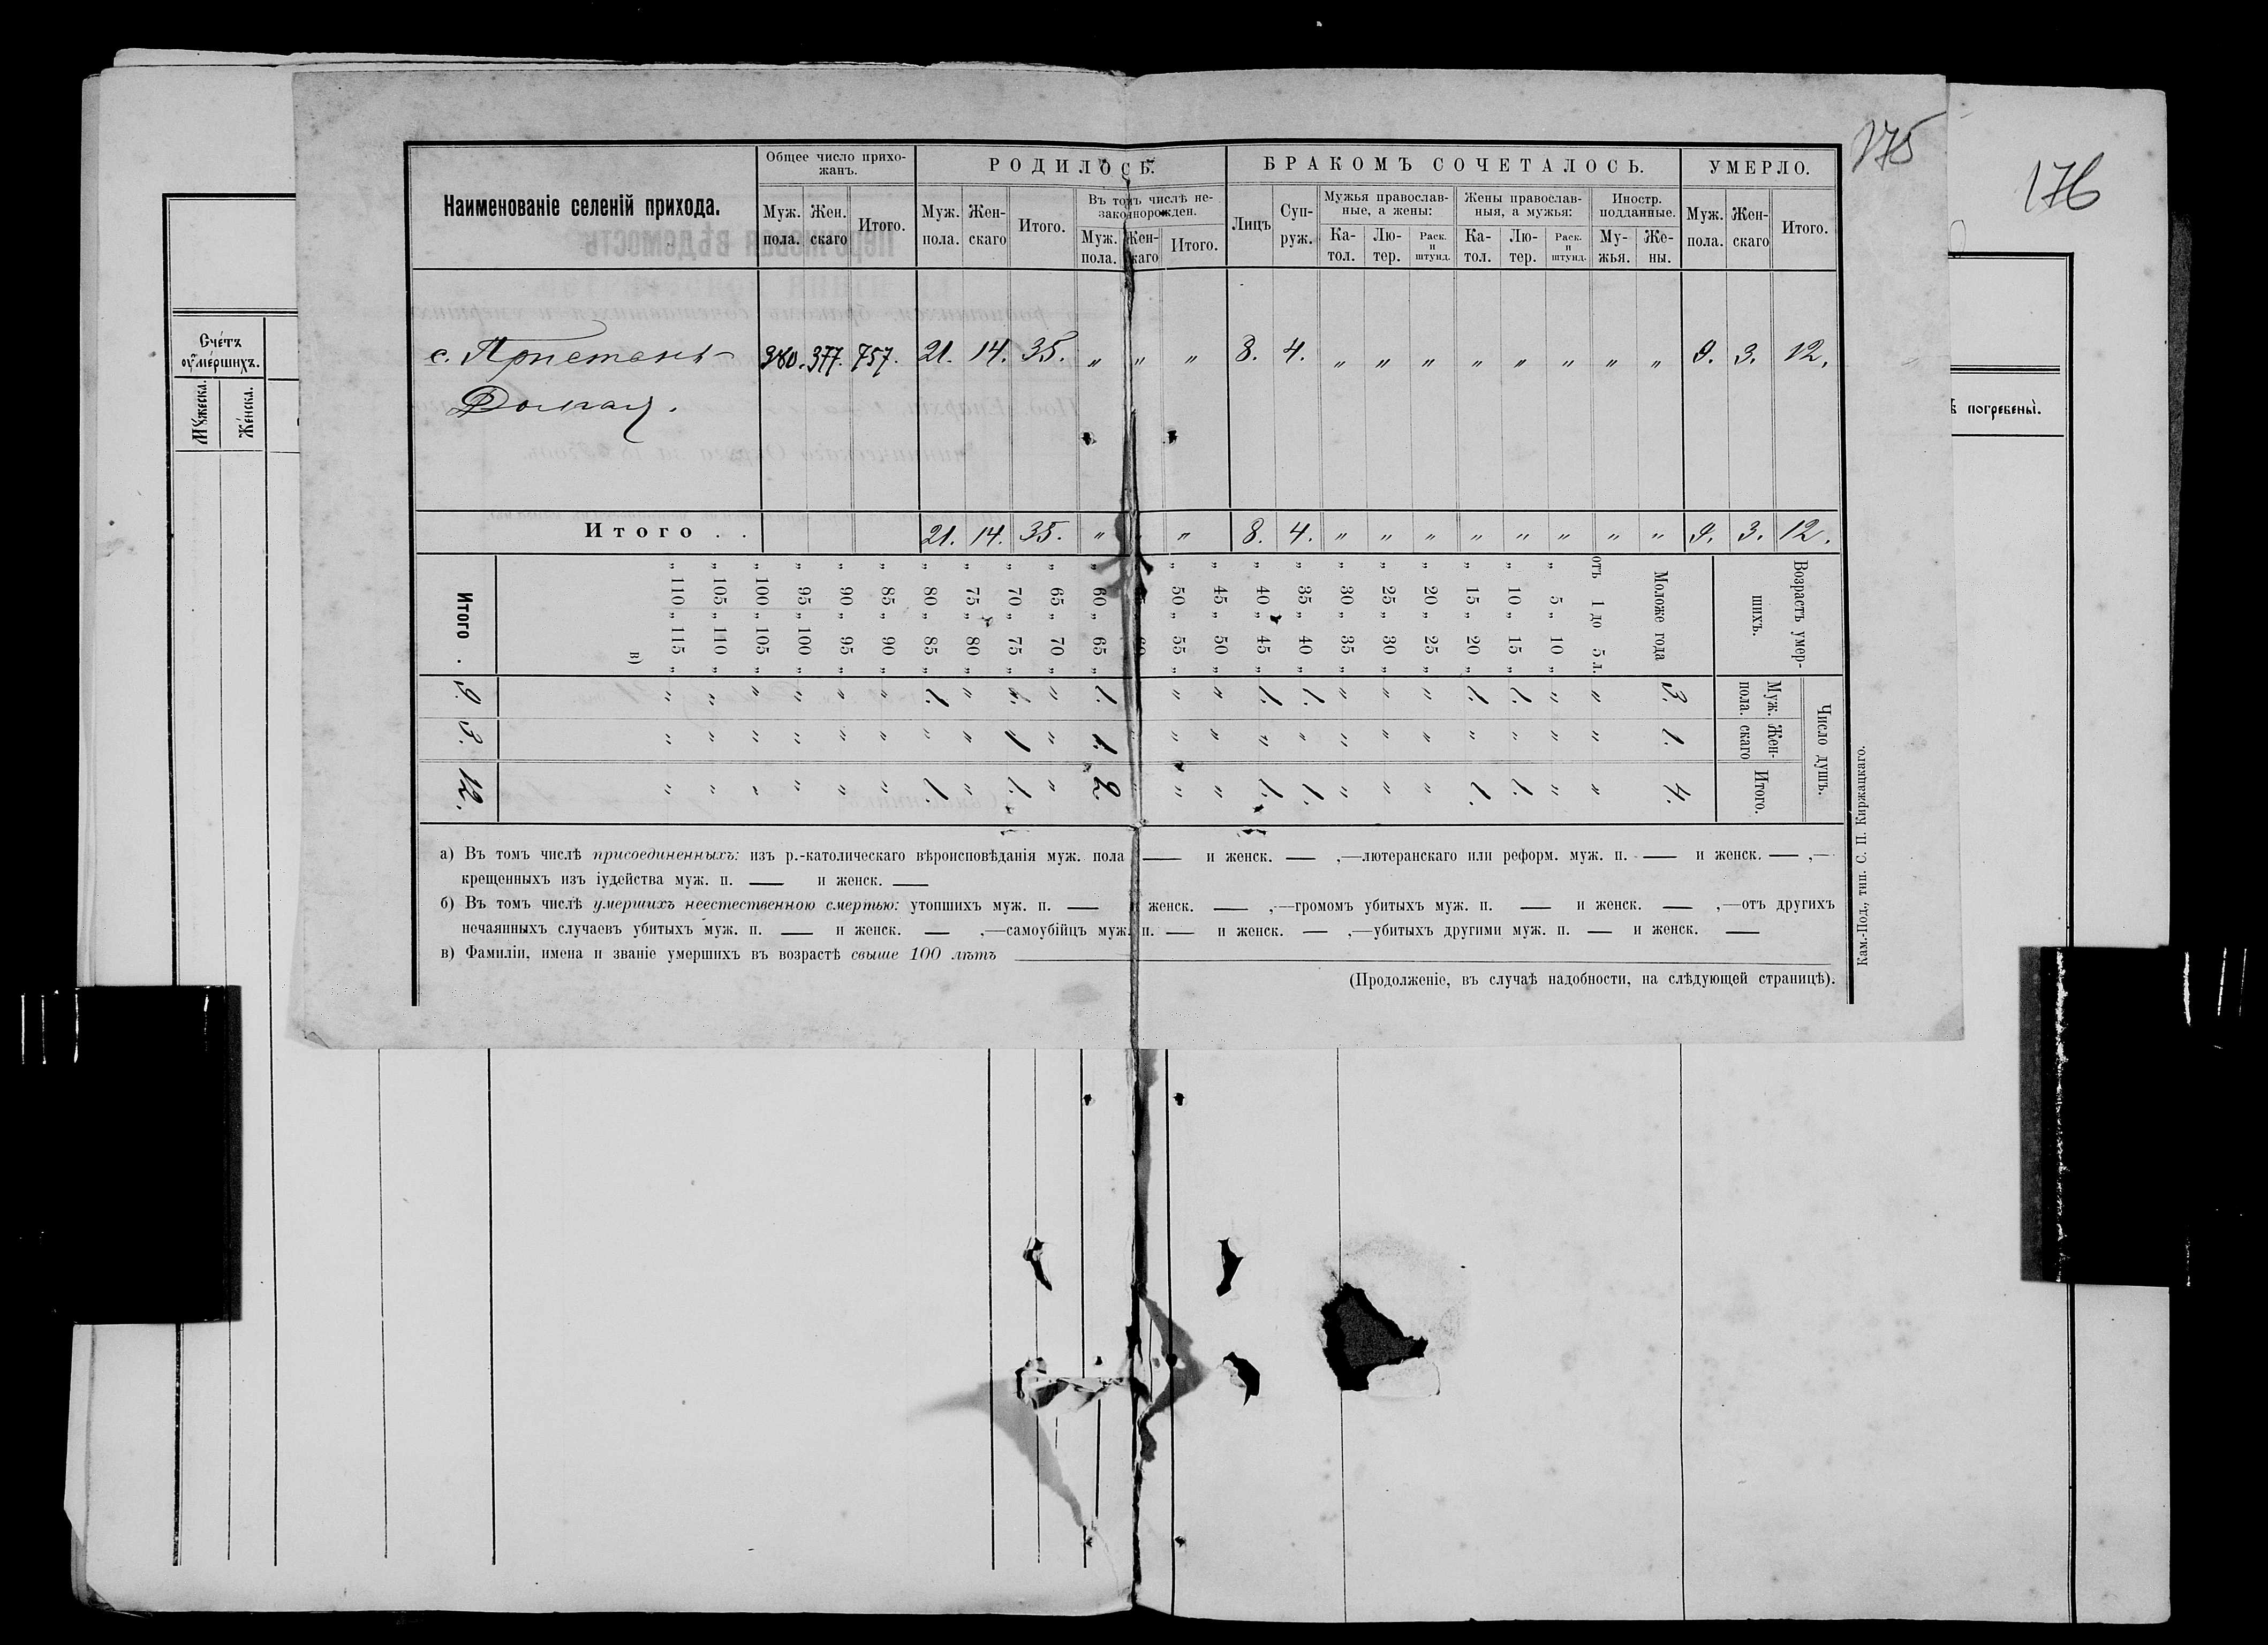 175
176
Наименованіе селеній прихода.
Общее число прихо-
жанъ.
Муж. пола.
Жен. скаго
Итого.
РОДИЛОСЬ.
Муж. пола.
Жен- скаго
Итого.
Въ томъ числѣ не-
законнорожден.
Муж. пола.
Жен- скаго
Итого.
БРАКОМЪ СОЧЕТАЛОСЬ.
Лицъ
Суп- руж.
Мужья православ-
ные, а жены:
Ка- тол.
Лю- тер.
Раск. и штунд.
Жены православ-
ныя, а мужья:
Ка- тол.
Лю- тер.
Раск. и штунд.
Иностр.
подданные.
Му- жья.
Же- ны.
УМЕРЛО.
Муж. пола.
Жен- скаго
Итого.
с. Пристань 380. 377. 757. 21. 14. 35. „ „ „ 8. 4. „ „ „ „ „ „ „ „ 9. 3. 12.
Итого . . 21. 14. 35. „ „ 8. 4. „ „ „ „ „ „ „ „ 9. 3. 12.
Возрастъ умер-
шихъ.
Число душъ.
Муж. пола.
Жен- скаго
Итого.
Моложе года 3. 1. 4.
отъ 1 до 5 л. „ „ „
„ 5 „ 10 „ „ „ „
„ 10 „ 15 „ 1. „ 1.
„ 15 „ 20 „ 1. „ 1.
„ 20 „ 25 „ „ „ „
„ 25 „ 30 „ „ „ „
„ 30 „ 35 „ „ „ „
„ 35 „ 40 „ 1. „ 1.
„ 40 „ 45 „ 1. „ 1.
„ 45 „ 50 „ „ „ „
„ 50 „ 55 „ „ „ „
„ 60 „ 65 „ 1. 1. 2.
„ 65 „ 70 „ „ „ „
„ 70 „ 75 „ 1 1.
„ 75 „ 80 „ „ „ „
„ 80 „ 85 „ 1. „ 1.
„ 85 „ 90 „ „ „ „
„ 90 „ 95 „ „ „ „
„ 95 „ 100 „ „ „ „
„ 100 „ 105 „ „ „ „
„ 105 „ 110 „ „ „ „
„ 110 „ 115 „ „ „ „
в)
Итого . 9. 3. 12.
а) Въ томъ числѣ присоединенныхъ: изъ р.-католическаго вѣроисповѣданія муж. пола — и женск. — ,—лютеранскаго или реформ. муж. п. — и женск. — ,—
крещенныхъ изъ іудейства муж. п. — и женск. —
б) Въ томъ числѣ умершихъ неестественною смертью: утопшихъ муж. п. — и женск. — ,—громомъ убитыхъ муж. п. — и женск. — ,—отъ другихъ
нечаянныхъ случаевъ убитыхъ муж. п. — и женск. — ,—самоубійцъ муж. п. — и женск. — ,—убитыхъ другими муж. п. — и женск. —
в) Фамиліи, имена и званіе умершихъ въ возрастѣ свыше 100 лѣтъ
(Продолженіе, въ случаѣ надобности, на слѣдующей страницѣ).
Кам.-Под., тип. С. П. Киржацкаго.
Счетъ
оумершихъ.
Мужеска.
Женска.
погребены.